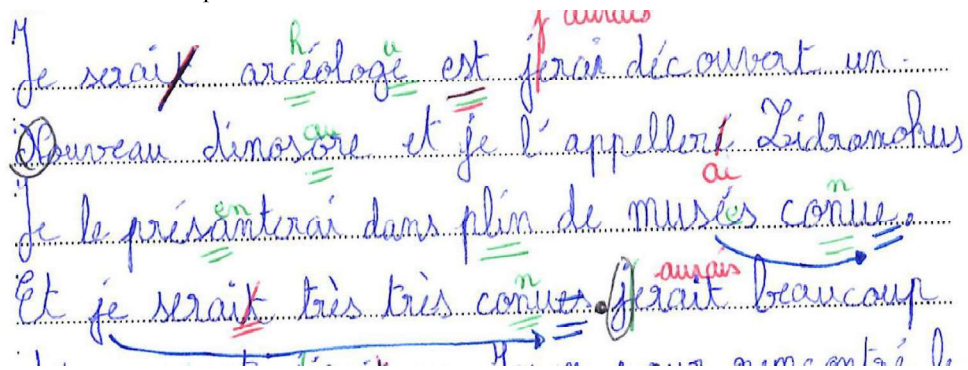 j'aurais
Je serait arcéologe est jerai découvert un
Nouveau dinosore et je l'appelleré Zidranohus
Je le présanterai dans plin de musés conue.
Et je serait très très conues. jerait beaucoup
h u au ai en e n n aurais